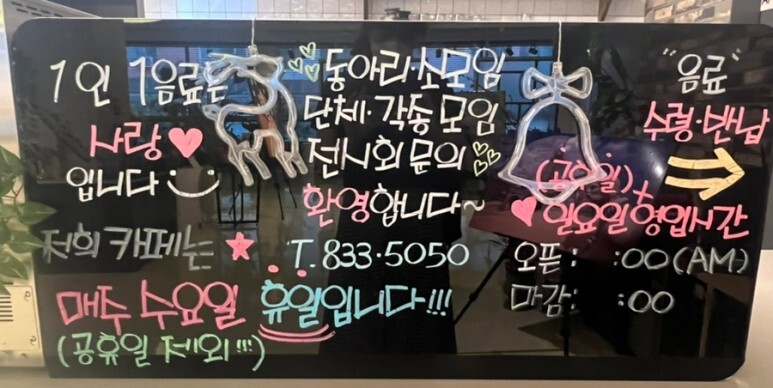 1인 1음료는
사랑♥
입니다
동아리·소모임
단체·각종모임
전시회 문의
환영합니다~
"음료"
수령·반납
(공휴일)+
♥일요일 영업시간
오픈: :00(AM)
마감: :00
저희 카페는 ★ T.833·5050
매주 수요일 휴일입니다!!!
(공휴일 제외!!!)